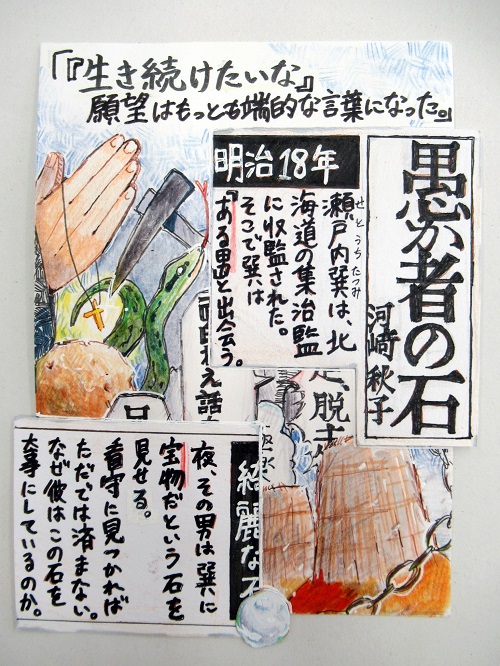 「『生き続けたいな』
願望はもっとも端的な言葉になった。」
愚か者の石
河﨑秋子
明治18年
瀬戸内巽は、北
せとうちたつみ
海道の集治監
に収監された。
そこで巽は
『ある男と出会う。
綺麗な石
夜、その男は巽に
宝物だという石を
見せる。
看守に見つかれば
ただでは済まない。
なぜ彼はこの石を
大事にしているのか。